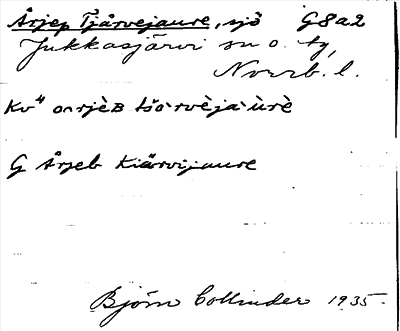 Årjep Tjårvejaure, sjö G8a2
Jukkasjärvi sn o. tg,
Norrb. l.
Kv" oarjèB tšårvèjauùrè
G Årjeb Kiärvijaure
Björn Collinder 1935.